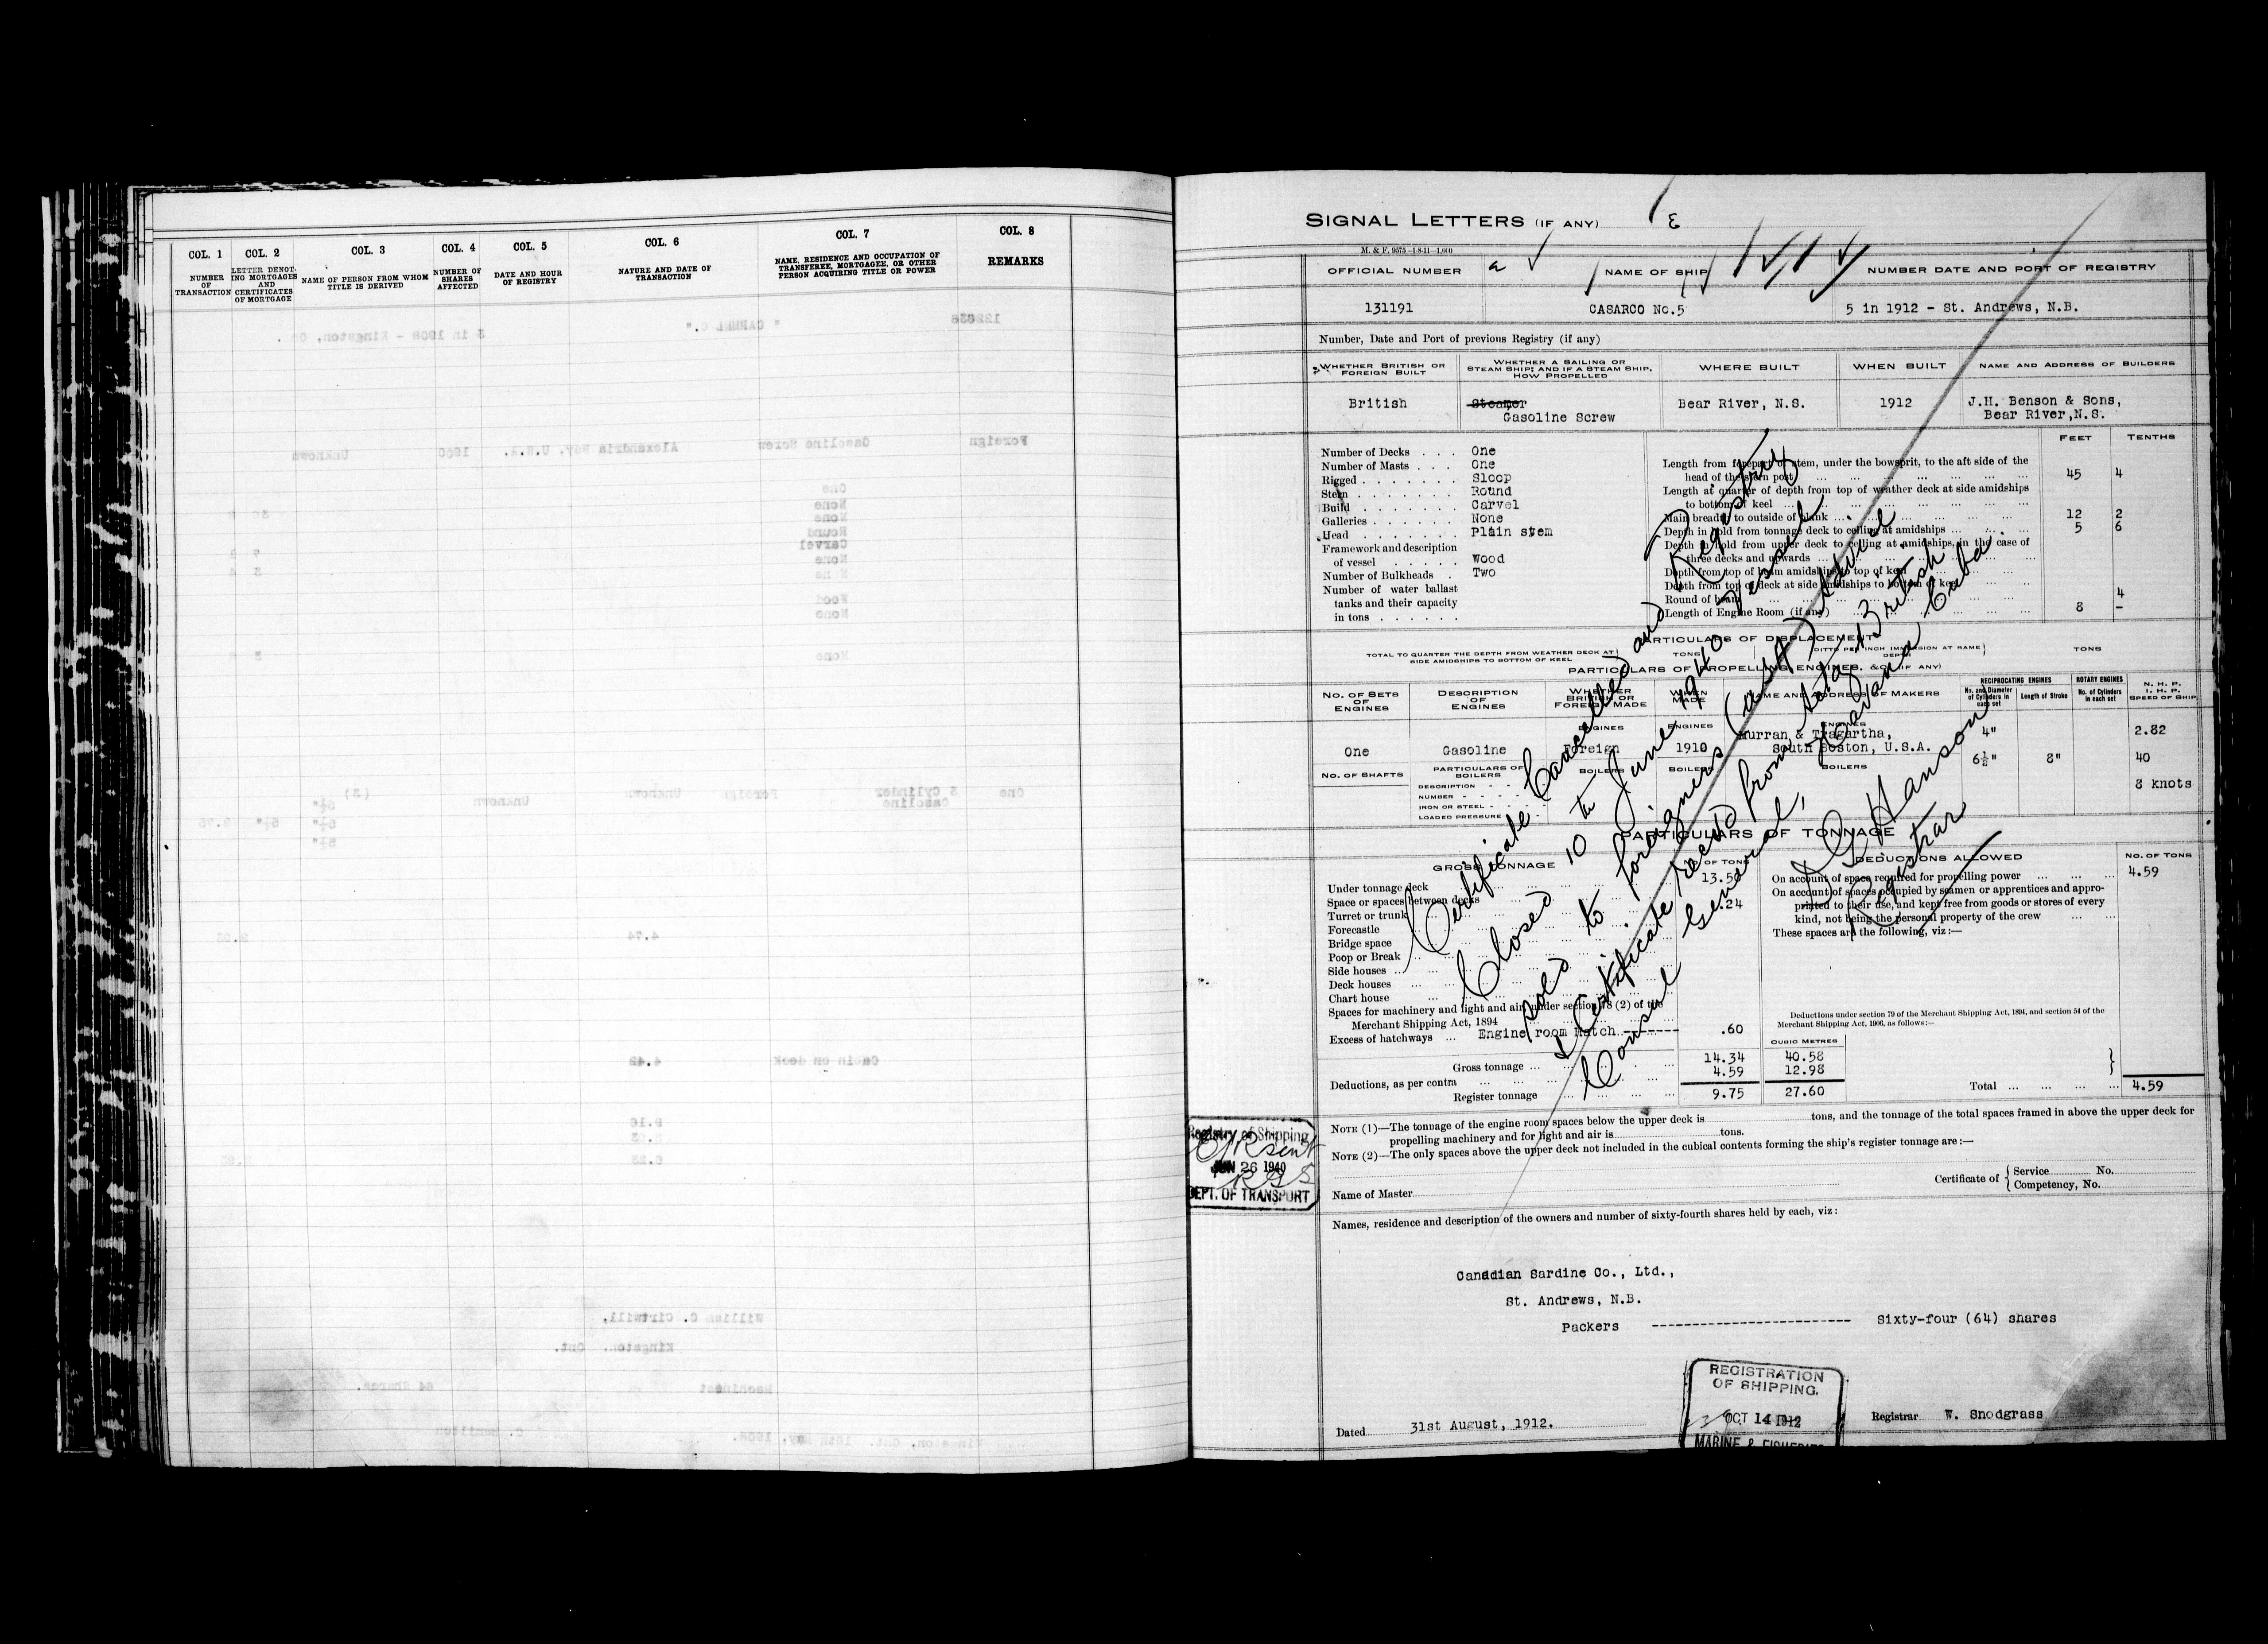 COL. 1
NUMBER OF TRANSACTION
COL. 2
LETTER DENOTING MORTGAGES AND CERTIFICATES OF MORTGAGE
COL. 3
NAME OF PERSON FROM WHOM TITLE IS DERIVED
COL. 4
NUMBER OF SHARES AFFECTED
COL. 5
DATE AND HOUR OF REGISTRY
COL. 6
NATURE AND DATE OF TRANSACTION
COL. 7
NAME, RESIDENCE AND OCCUPATION OF TRANSFEREE, MORTGAGEE, OR OTHER PERSON ACQUIRING TITLE OR POWER
COL. 8
REMARKS
SIGNAL LETTERS (IF ANY)
M. & F. 9575—1-8-11—1,000
OFFICIAL NUMBER
NAME OF SHIP
NUMBER DATE AND PORT OF REGISTRY
131191
CASARCO No.5
5 in 1912 - St. Andrews, N.B.
Number, Date and Port of previous Registry (if any)
WHETHER BRITISH OR FOREIGN BUILT
WHETHER A SAILING OR STEAM SHIP; AND IF A STEAM SHIP, HOW PROPELLED
WHERE BUILT
WHEN BUILT
NAME AND ADDRESS OF BUILDERS
British
Steamer
Gasoline Screw
Bear River, N.S.
1912
J.H. Benson & Sons,
Bear River,N.S.
FEET TENTHS
Number of Decks . . . One
Number of Masts . . . One
Rigged . . . . . . . Sloop
Stern . . . . . . . Round
Build . . . . . . . Carvel
Galleries . . . . . . None
Head . . . . . . . Plain stem
Framework and description
of vessel . . . . . Wood
Number of Bulkheads . Two
Number of water ballast
tanks and their capacity
in tons . . . . . .
Length from forepart of stem, under the bowsprit, to the aft side of the
head of the stern post ... 45 4
Length at quarter of depth from top of weather deck at side amidships
to bottom of keel ...
Main breadth to outside of plank ... 12 2
Depth in hold from tonnage deck to ceiling at amidships ... 5 6
Depth in hold from upper deck to ceiling at amidships, in the case of
three decks and upwards ...
Depth from top of beam amidships to top of keel
Depth from top of deck at side amidships to bottom of keel
Round of beam ... 4
Length of Engine Room (if any) ... 8 -
PARTICULARS OF DISPLACEMENT
TOTAL TO QUARTER THE DEPTH FROM WEATHER DECK AT SIDE AMIDSHIPS TO BOTTOM OF KEEL
TONS
DITTO PER INCH IMMERSION AT SAME DEPTH
TONS
PARTICULARS OF PROPELLING ENGINES, &C. (IF ANY)
No. OF SETS OF ENGINES
DESCRIPTION OF ENGINES
WHETHER BRITISH OR FOREIGN MADE
WHEN MADE
NAME AND ADDRESS OF MAKERS
RECIPROCATING ENGINES
No. and Diameter of Cylinders in each set
Length of Stroke
ROTARY ENGINES
No. of Cylinders in each set
N. H. P.
I. H. P.
SPEED OF SHIP
ENGINES ENGINES ENGINES
One
Gasoline
Foreign
1910
Murran & Tragartha,
South Boston, U.S.A.
4"
6½"
8"
2.82
40
8 knots
No. OF SHAFTS
PARTICULARS OF BOILERS
BOILERS BOILERS BOILERS
DESCRIPTION
NUMBER
IRON OR STEEL
LOADED PRESSURE
PARTICULARS OF TONNAGE
GROSS TONNAGE
No. OF TONS
Under tonnage deck 13.50
Space or spaces between decks
Turret or trunk .24
Forecastle
Bridge space
Poop or Break
Side houses
Deck houses
Chart house
Spaces for machinery and light and air, under section 78 (2) of the
Merchant Shipping Act, 1894
Excess of hatchways ... Engine room Hatch .60
CUBIC METRES
Gross tonnage ... 14.34 40.58
Deductions, as per contra 4.59 12.98
Register tonnage 9.75 27.60
DEDUCTIONS ALLOWED
No. OF TONS
On account of space required for propelling power ... 4.59
On account of spaces occupied by seamen or apprentices and appro-
priated to their use, and kept free from goods or stores of every
kind, not being the personal property of the crew
These spaces are the following, viz:—
Deductions under section 79 of the Merchant Shipping Act, 1894, and section 54 of the
Merchant Shipping Act, 1906, as follows:—
Total ... 4.59
Certificate Cancelled and Registry
Closed 10th June 1940. Vessel
sold to foreigners (
& Certificate rec'd from
British
Consul General, Havana Cuba
Hanson
Registrar
NOTE (1)—The tonnage of the engine room spaces below the upper deck is tons, and the tonnage of the total spaces framed in above the upper deck for
propelling machinery and for light and air is tons.
NOTE (2)—The only spaces above the upper deck not included in the cubical contents forming the ship's register tonnage are:—
Name of Master
Certificate of { Service No.
Competency, No.
Registry of Shipping
JUN 26 1940
DEPT. OF TRANSPORT
Names, residence and description of the owners and number of sixty-fourth shares held by each, viz:
Canadian Sardine Co., Ltd.,
St. Andrews, N.B.
Packers ---------- Sixty-four (64) shares
REGISTRATION
OF SHIPPING.
OCT 14 1912
MARINE & FISHERIES
Dated 31st August, 1912.
Registrar W. Snodgrass